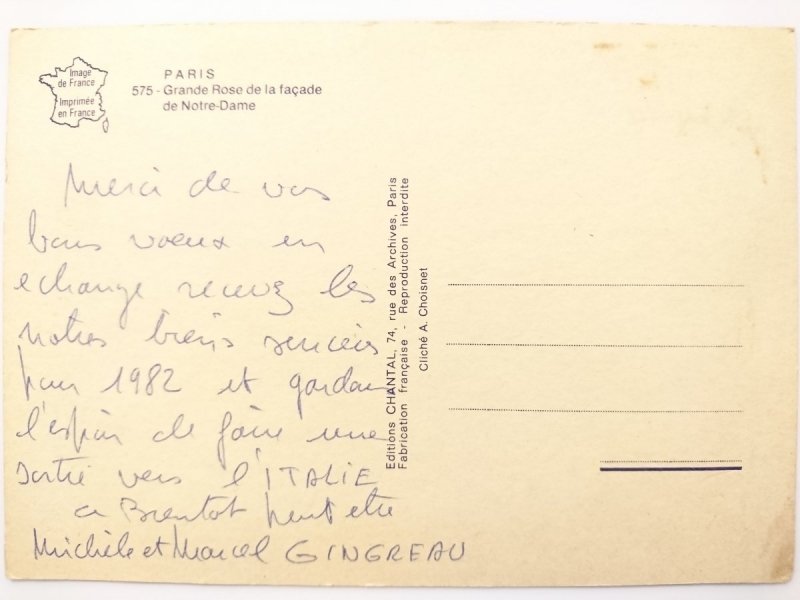 Image
de France
Imprimée
en France
PARIS
575 - Grande Rose de la façade
de Notre-Dame
Merci de vos
bons voeux en
echange recevez les
notres biens sinceres
pour 1982 et gardans
l'espoir de faire une
sortie vers l'ITALIE
a Bientot peut etre
Michèle et Marcel GINGREAU
Editions CHANTAL, 74, rue des Archives, Paris
Fabrication française - Reproduction interdite
Cliché A. Choisnet